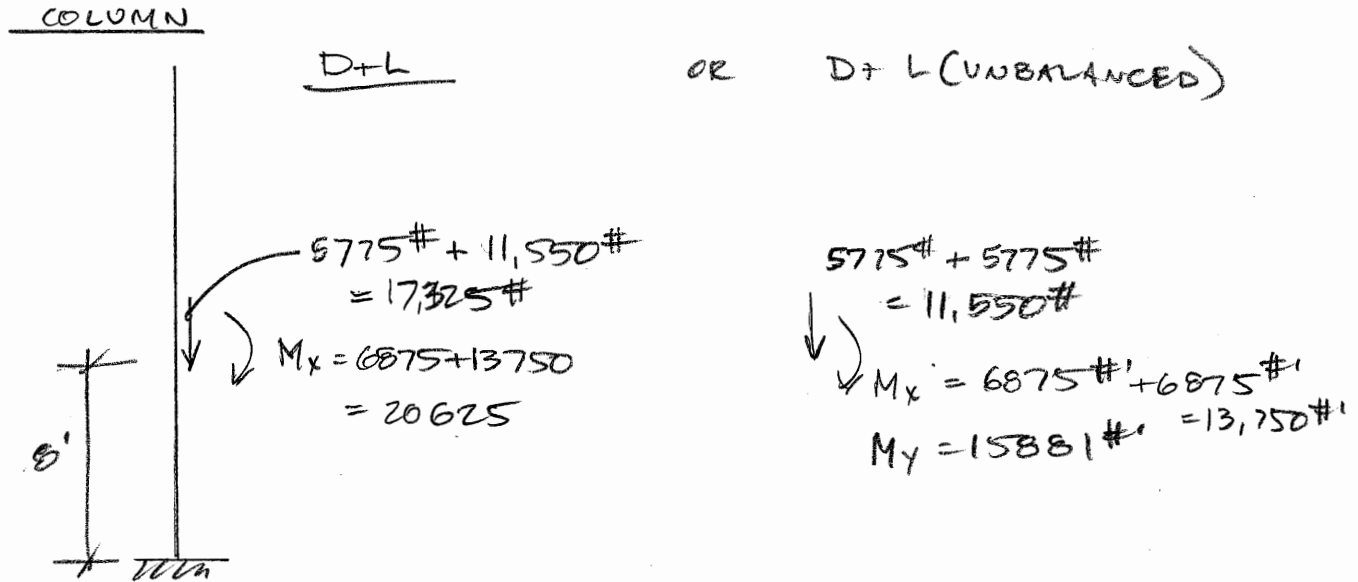 COLUMN
D+L OR D+ L (UNBALANCED)
5775# + 11,550#
= 17,325#
Mx = 6875+13750
= 20625
8'
5775# + 5775#
= 11,550#
Mx = 6875#' + 6875#'
= 13,750#'
My = 15881#'